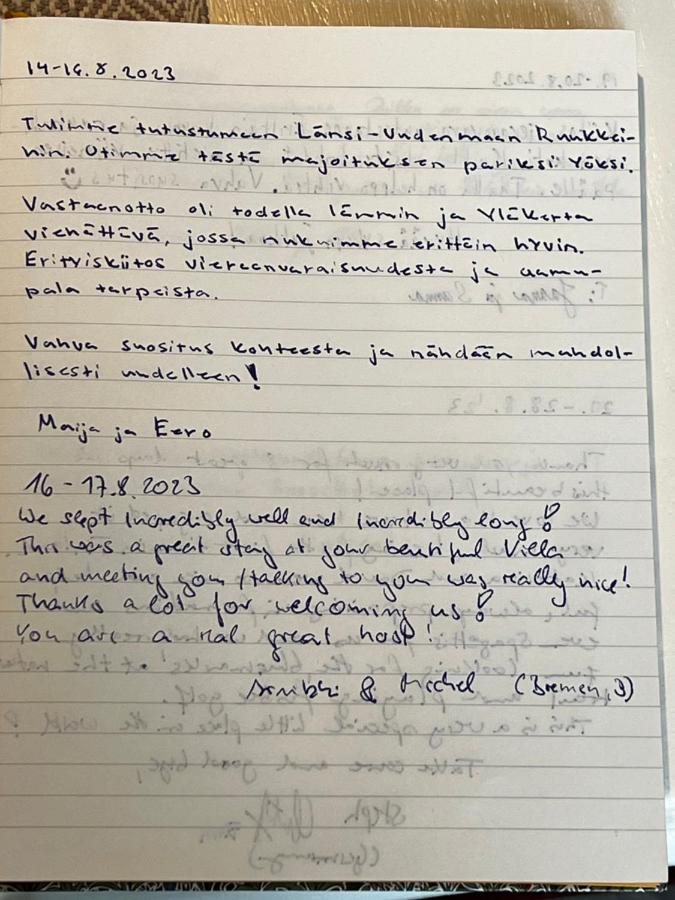 14-16.8.2023
Tulimme tutustumaan Länsi-Uudenmaan Ruukkei-
hin. Otimme tästä majoituksen pariksi yöksi.
Vastaanotto oli todella lämmin ja yläkerta
viehättävä, jossa nukuimme erittäin hyvin.
Erityiskiitos vieraanvaraisuudesta ja aamu-
pala tarpeista.
Vahva suositus kohteesta ja nähdään mahdol-
lisesti uudelleen!
Maija ja Eero
16-17.8.2023
We slept incredibly well and incredibly long!
This was a great stay at your beutiful Villa
and meeting you / talking to you was really nice!
Thanks a lot for welcoming us!
You are a real great host!
& Michel (Bremen,